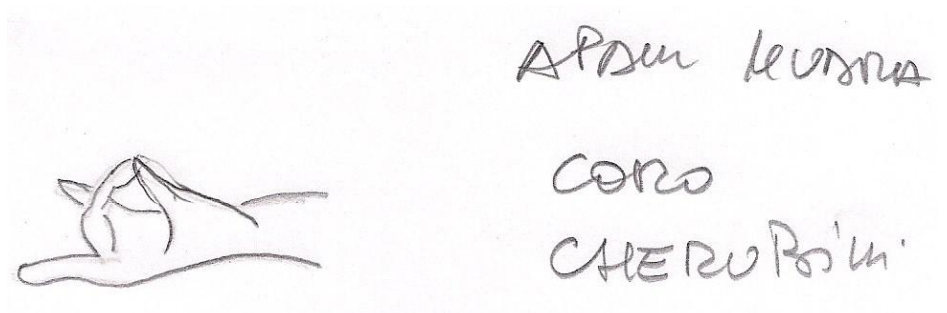 APAN MUDRA
CORO
CHERUBINI